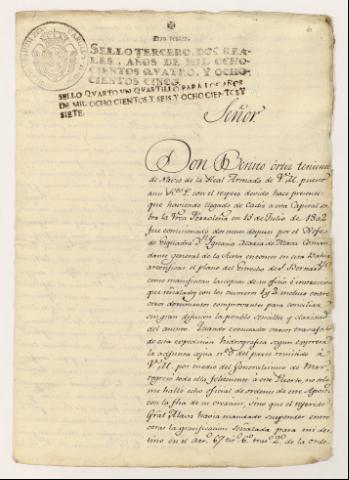 Dos reales.
SELLO TERCERO, DOS REA-
LES, AÑOS DE MIL OCHO-
CIENTOS QVATRO, Y OCHO-
CIENTOS CINCO.
SELLO QVARTO VN QVARTILLO PARA LOS AÑOS
DE MIL OCHO CIENTOS Y SEIS Y OCHO CIENTOS Y
SIETE.
Señor
Don Benito ortiz teniente
de Navio de la Real Armada de V. M. puesto
con el respeto devido hace presente
que haviendo llegado de Cadiz a esta Capital
la Vrca Ferroleña en 15 de Julio de 1802
fue comisionado dos meses despues por el Xefe
de Esquadra Dn. Ignacio Maria de Alava Coman-
dante general de la
a rectificar el plano del Estrecho de Sn. Bernardino
como manifiestan las copias de su oficio é instruccion
que señaladas con los numeros 1 y 2 incluio entre
otros documentos comprovantes para conciliar
sin gran difusion la posible sencillez y claridad
del asunto. Quando evacuados varios travajos
de esta expedicion hidrografica segun expresa
la adjunta copia nº 3 del parte remitido á
V. M. por medio del Generalisimo de Mar,
regresó todo ella felizmente á este Puerto, no solo
me halló
con la fha de su creacion, sino que el referido
Gral Alava havia mandado suspender entre
otras la gratificacion señalada para mi des-
tino en el Art. 67 tit. 6 trat. 2 de la orde-